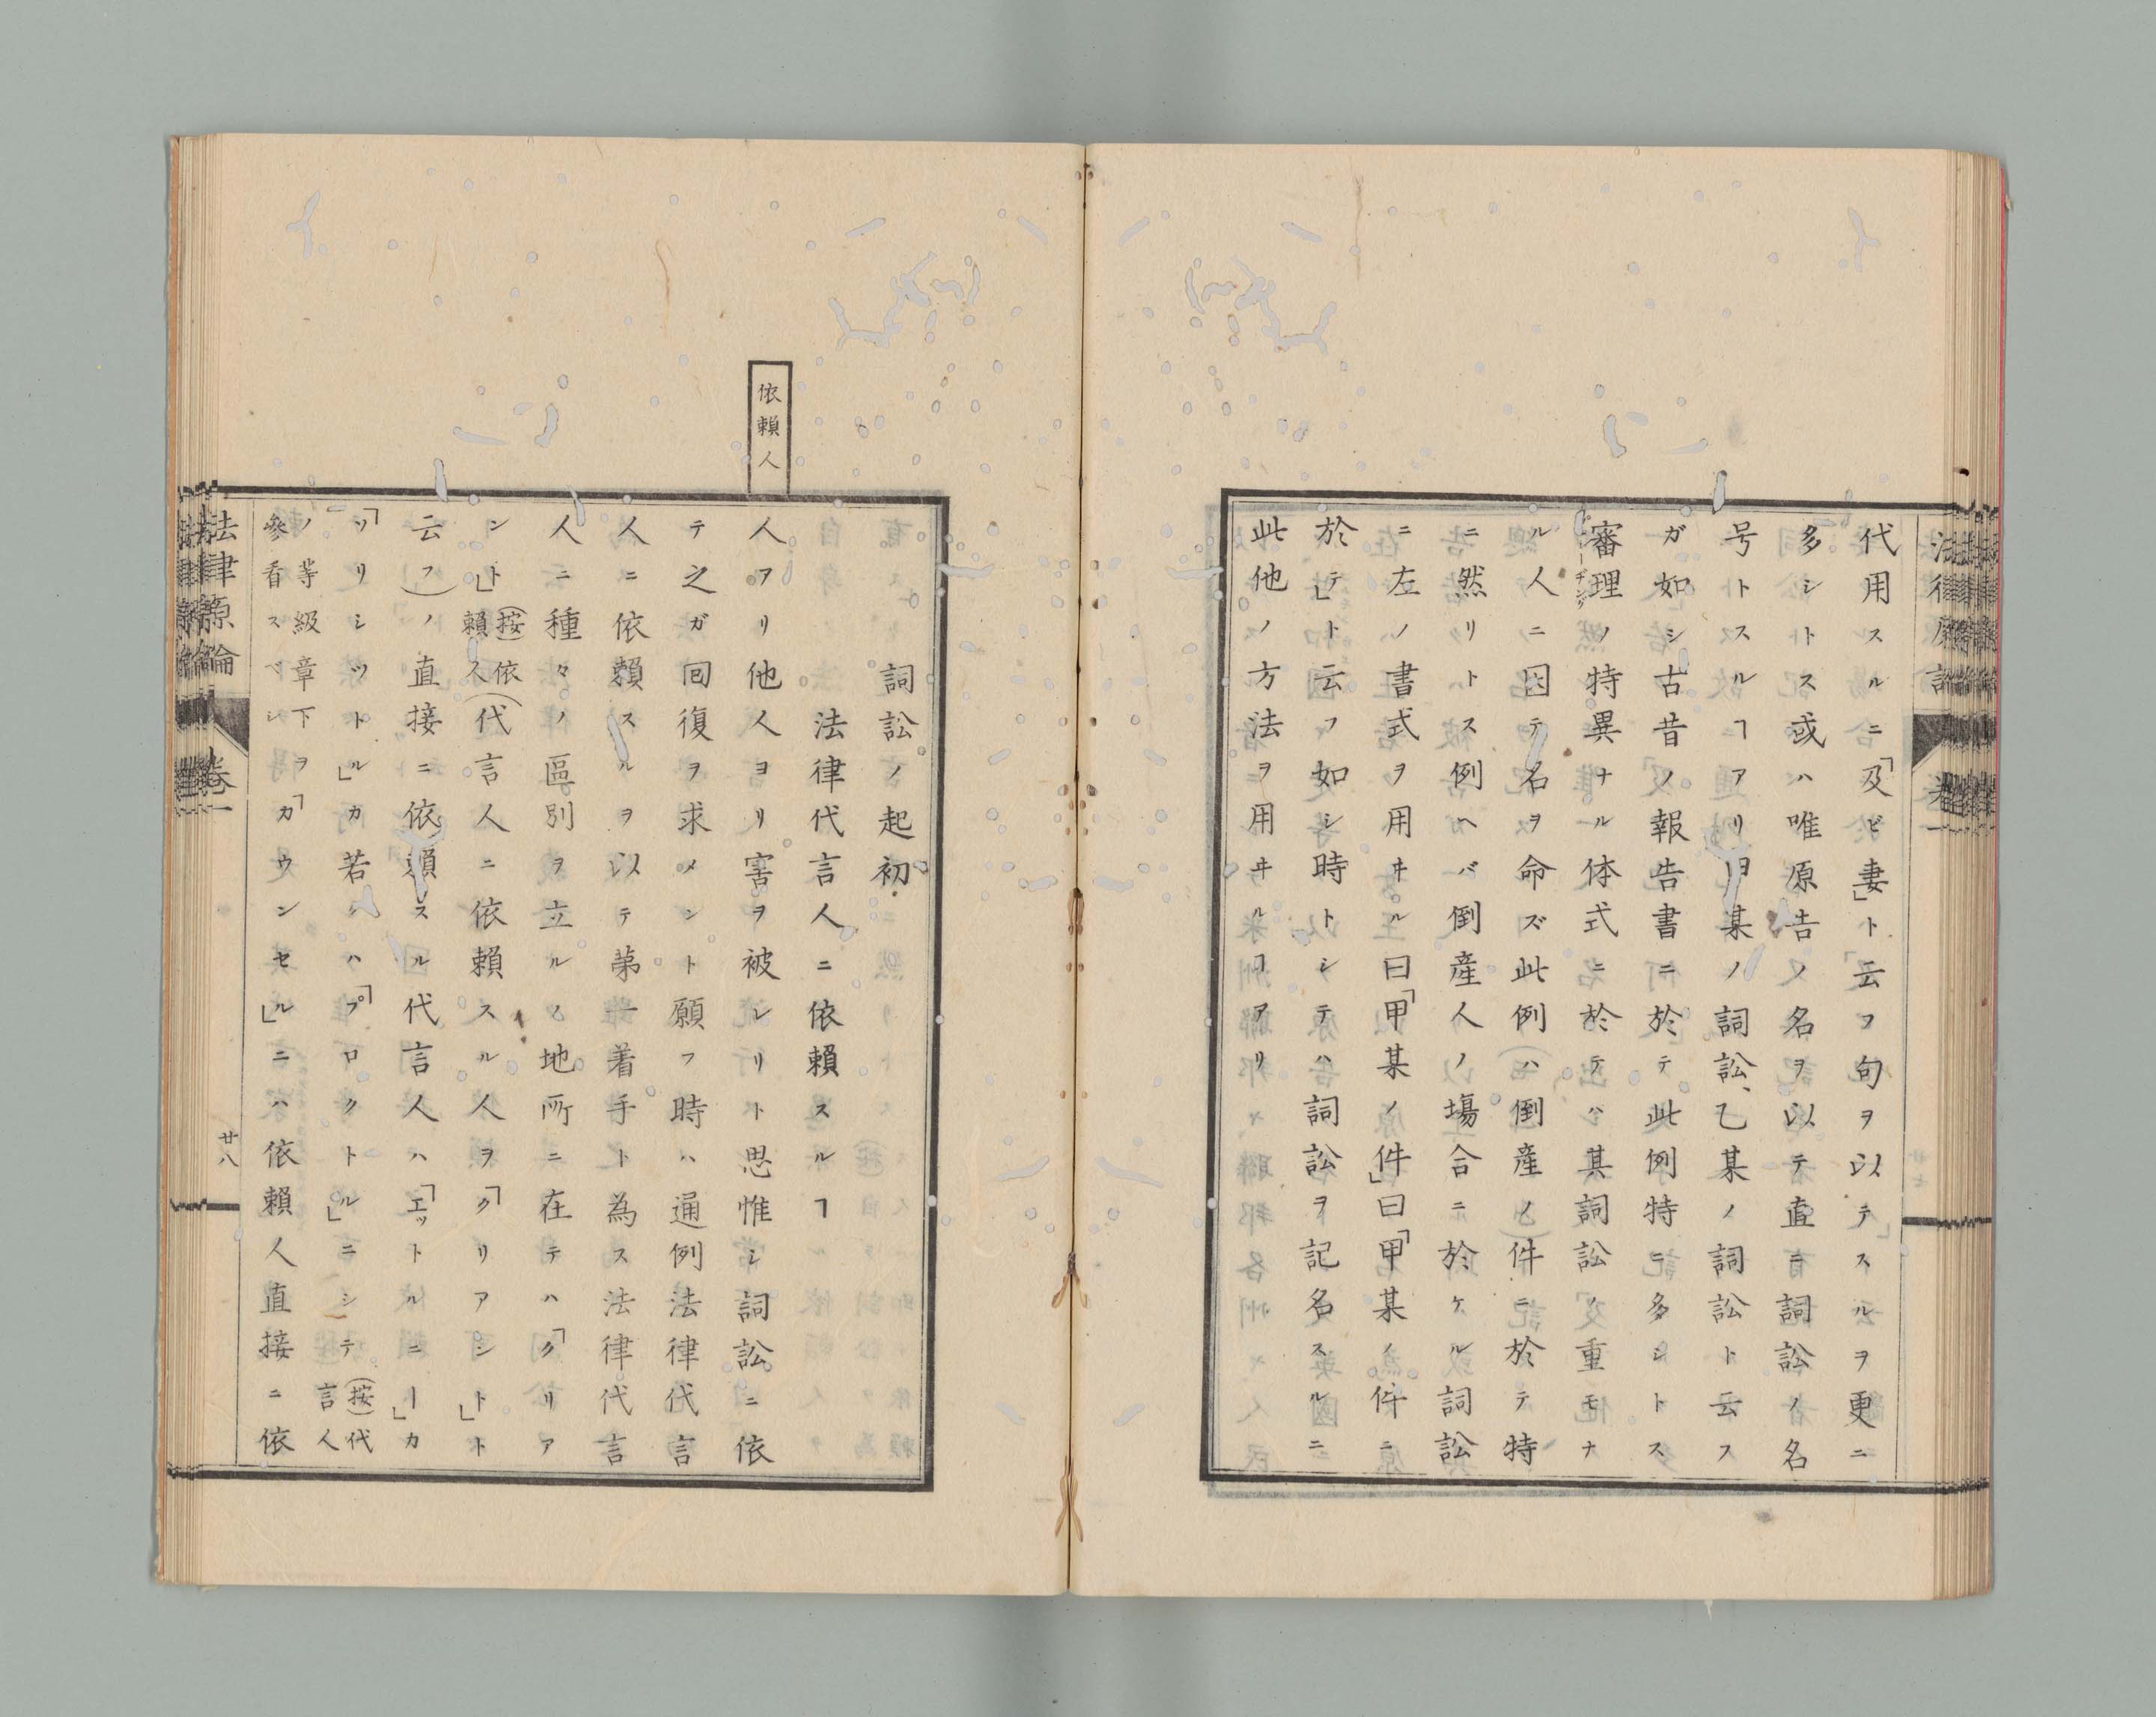 代用スルニ「及ビ妻」ト云フ句ヲ以テスルヲ更ニ
多シトス或ハ唯原告ノ名ヲ以テ直ニ詞訟ノ名
号トスルヿアリ甲某ノ詞訟、乙某ノ詞訟ト云ス
ガ如シ古昔ノ報告書ニ於テ此例特ニ多シトス
審理ノ特異ナル体式ニ於テハ其詞訟ノ重モナ
ル人ニ因テ名ヲ命ズ此例ハ倒産ノ件ニ於テ特
ニ然リトス例ヘバ倒産人ノ場合ニ於ケル詞訟
ニ左ノ書式ヲ用ヰル曰「甲某ノ件」曰「甲某ノ件ニ
於テ」ト云フ如シ時トシテハ詞訟ヲ記名スルニ
此他ノ方法ヲ用ヰルヿアリ
依賴人
詞訟ノ起初
法律代言人ニ依賴スルヿ
人アリ他人ヨリ害ヲ被レリト思惟シ詞訟ニ依
テ之ガ回復ヲ求メント願フ時ハ通例法律代言
人ニ依賴スルヲ以テ第一着手ト為ス法律代言
人ニ種々ノ區別ヲ立ルノ地所ニ在テハ「クリア
ント」(按)依賴人(代言人ニ依賴スル人ヲ「クリアシト」ト
云フ)ノ直接ニ依賴スル代言人ハ「エットルニー」カ
「ソリシットル」カ若シハ「プロクトル」ニシテ(按)代言人
ノ等級章下ヲ參看スベシ「カウンセル」ニハ依賴人直接ニ依
法律原論 卷一 廿八